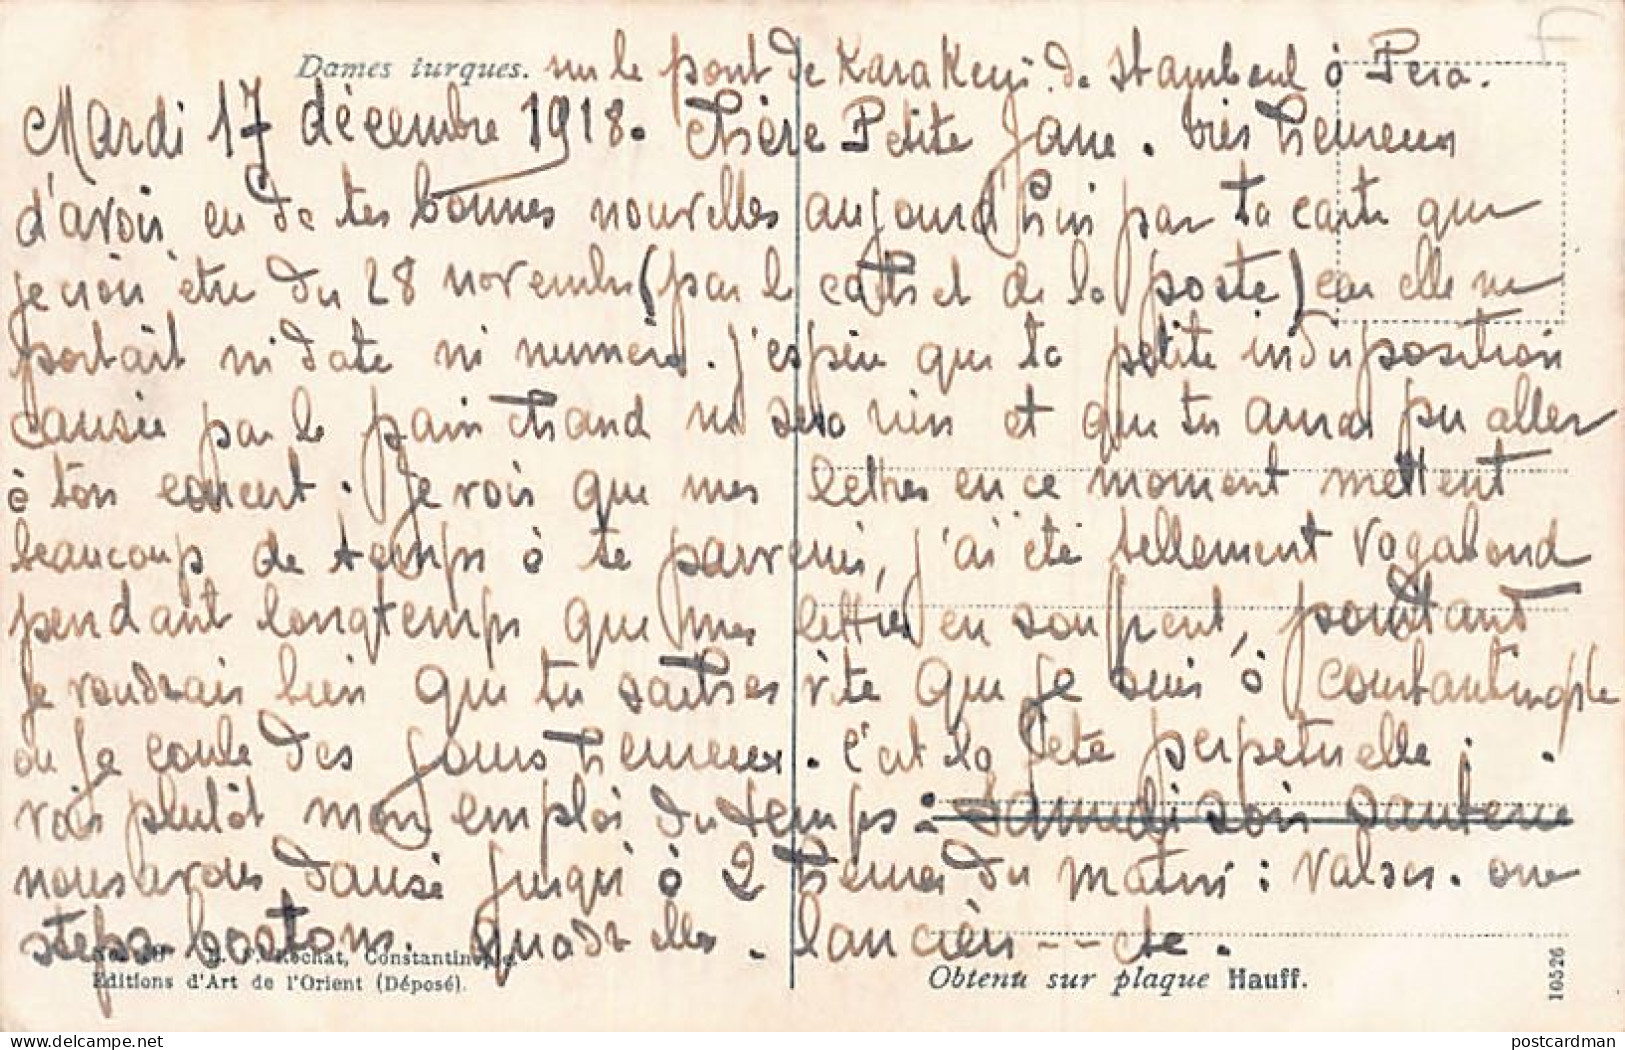 Dames turques. sur le pont de Karakeuj. de Stamboul à Pera.
Mardi 17 décembre 1918. Chère Petite Jane. très heureux
d'avoir eu de tes bonnes nouvelles aujourd'hui par ta carte que
je crois être du 28 novembre (par le cachet de la poste) car elle ne
portait ni date ni numéro. J'espère que ta petite indisposition
causée par le pain chaud ne sera rien et que tu auras pu aller
à ton concert. Je vois que mes lettres en ce moment mettent
beaucoup de temps à te parvenir, j'ai été tellement vagabond
pendant longtemps que mes lettres en souffrent, pourtant
je voudrais bien que tu saches vite que je suis à Constantinople
où je coule des jours heureux. C'est la fête perpetuelle;
vois plutôt mon emploi du temps: Samedi soir sauterie
nous avons dansé jusqu'à 2 heures du matin: valses. one
steps. bostons. quadrilles. lanciers --- etc.
E. F. Rochat, Constantinople.
Editions d'Art de l'Orient (Déposé).
Obtenu sur plaque Hauff.
10526
postcardman